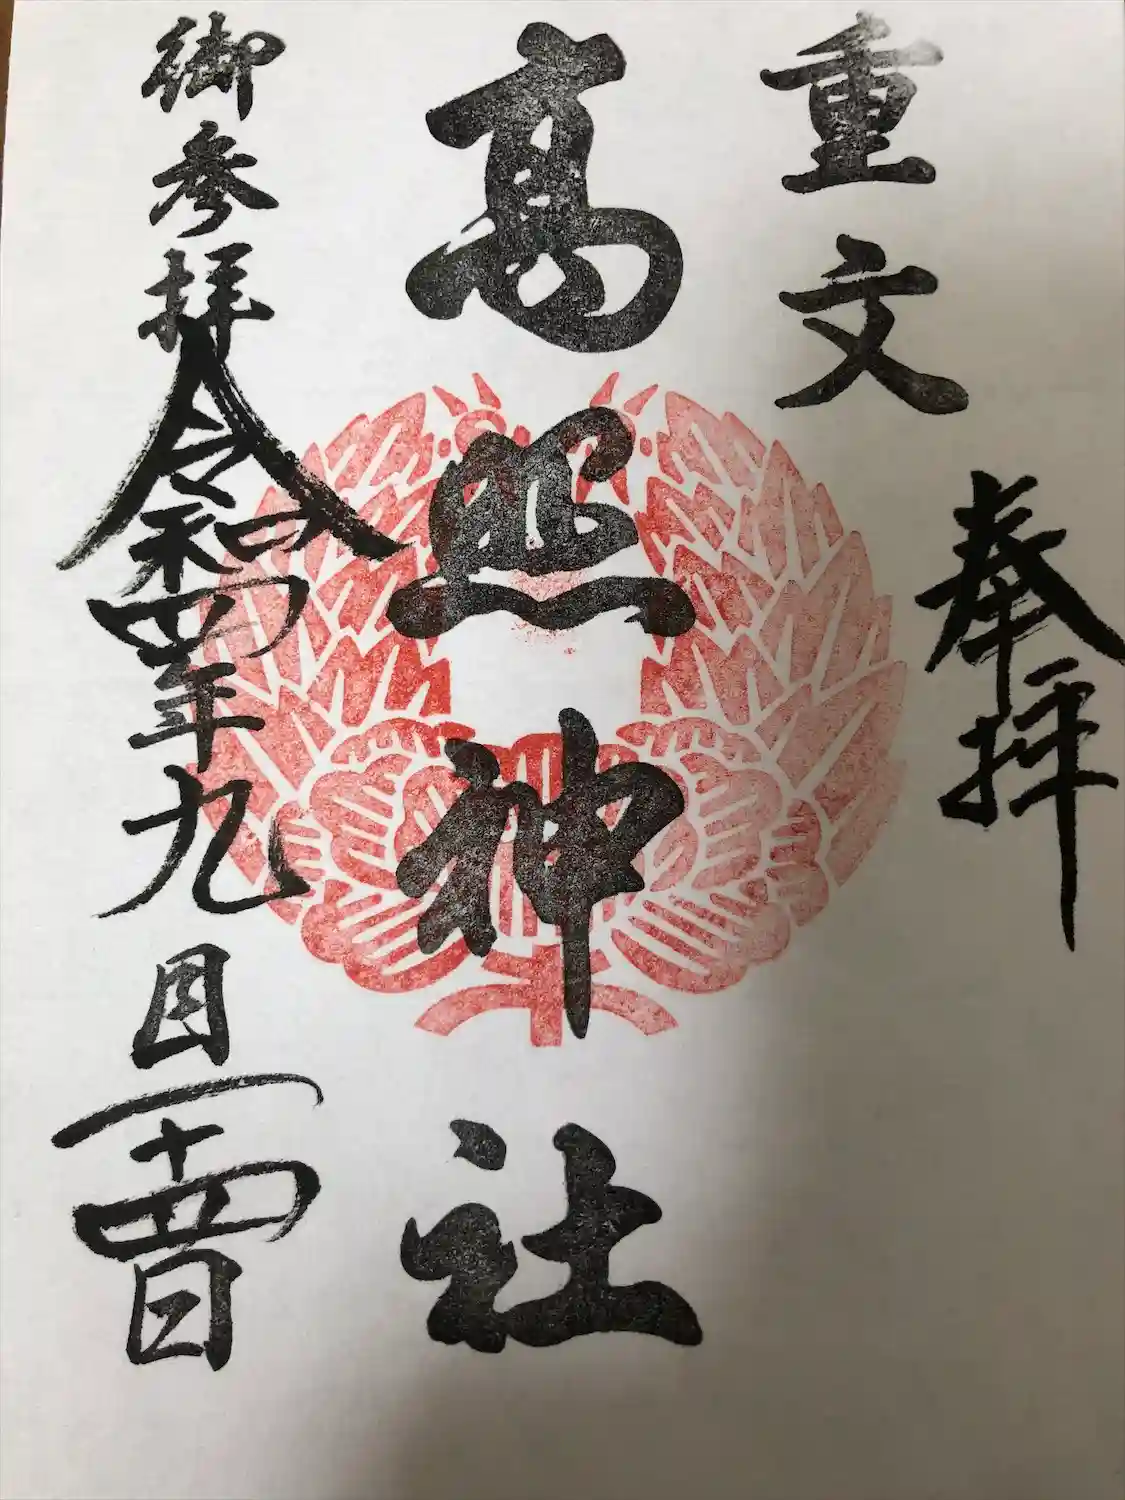 重文
奉拝
高照神社
御参拝
令和四年九月二十四日